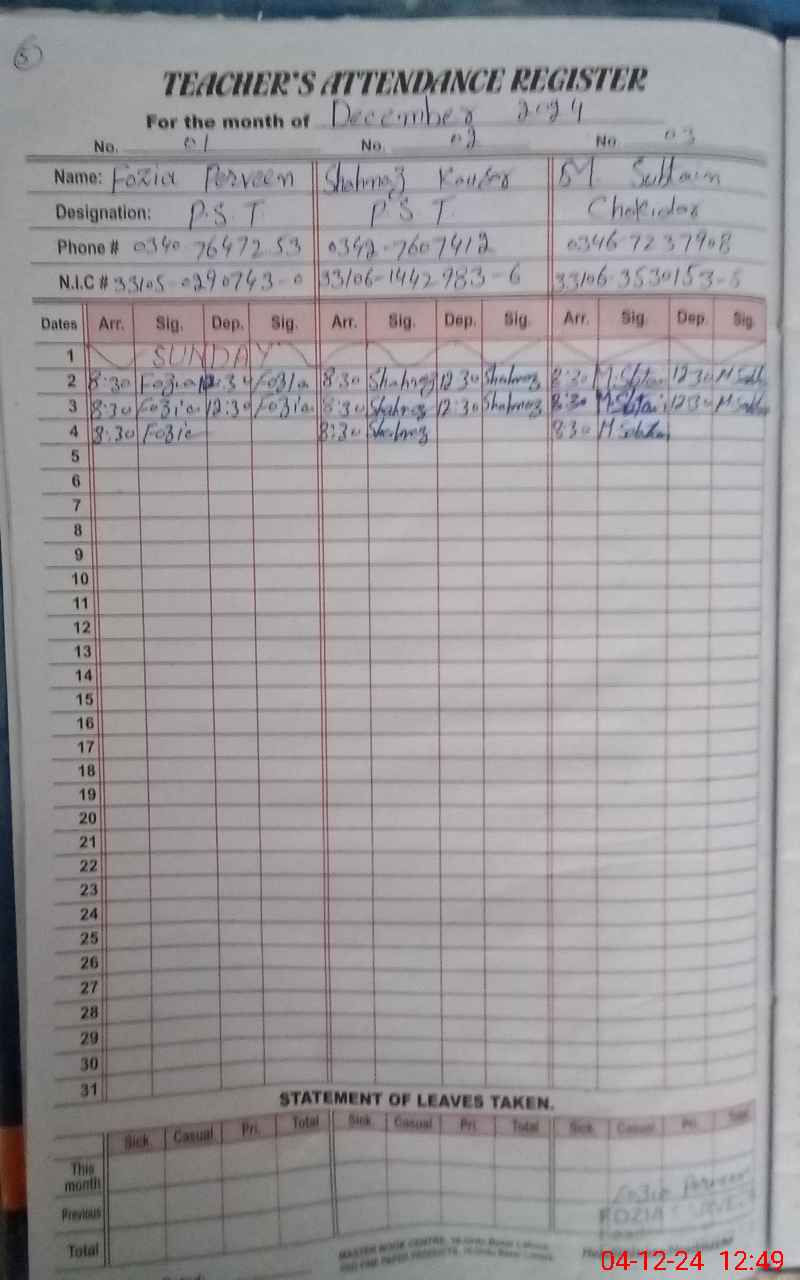 5
TEACHER'S ATTENDANCE REGISTER
For the month of December 2024
No. 01 No. 02 No 03
Name: Fozia Perveen Shahnaz Kousar M Subtain
Designation: P.S.T P.S.T Chokidar
Phone # 0340-7647253 0342-7607412 0346-7237908
N.I.C # 33105-0290743-0 33106-1442983-6 33106-3530153-5
Dates Arr. Sig. Dep. Sig. Arr. Sig. Dep. Sig. Arr. Sig. Dep. Sig.
1 SUNDAY
2 8:30 Fozia 12:30 Fozia 8:30 Shahnaz 12:30 Shahnaz 8:30 12:30
3 8:30 Fozia 12:30 Fozia 8:30 Shahnaz 12:30 Shahnaz 8:30 12:30
4 8:30 Fozia 8:30 Shahnaz 8:30
5
6
7
8
9
10
11
12
13
14
15
16
17
18
19
20
21
22
23
24
25
26
27
28
29
30
31
STATEMENT OF LEAVES TAKEN.
Sick. Casual Pri. Total Sick. Casual Pri. Total Sick. Casual Pri. Total
This month
Previous
Fozia Perveen
Total
MASTER BOOK CENTRE,
04-12-24 12:49